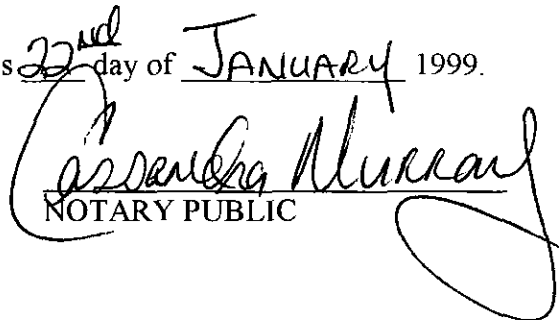 s 22nd day of JANUARY 1999.
Cassandra Murray
NOTARY PUBLIC